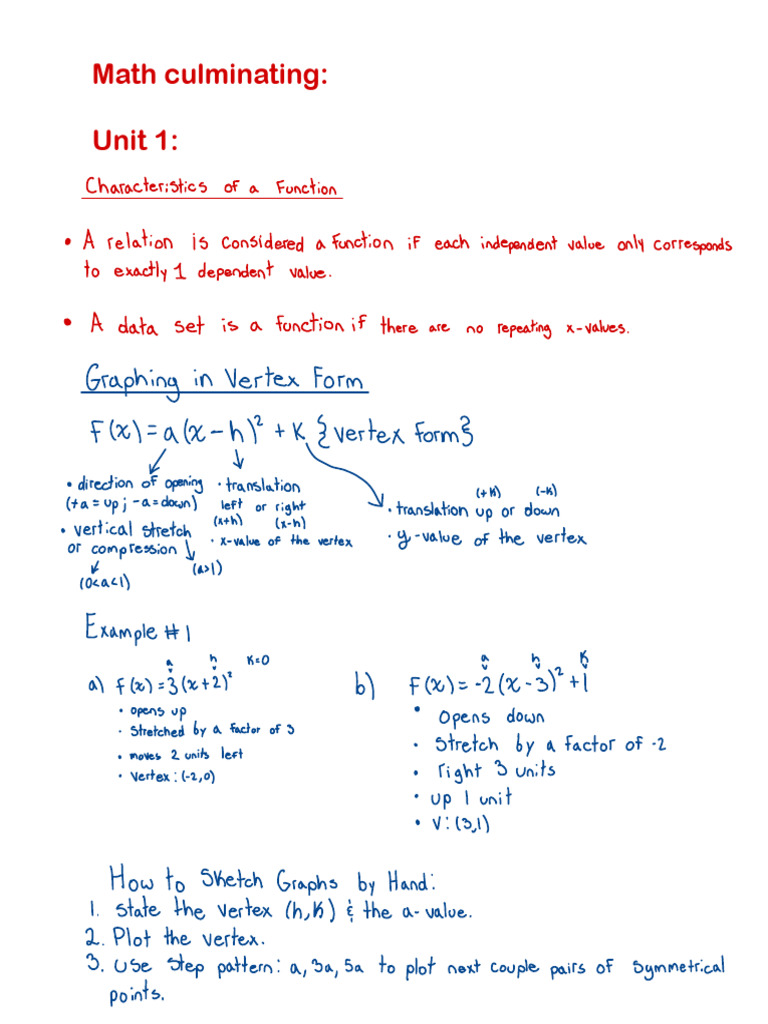 Math culminating:
Unit 1:
Characteristics of a Function
• A relation is considered a function if each independent value only corresponds
to exactly 1 dependent value.
• A data set is a function if there are no repeating x-values.
Graphing in Vertex Form
F(x) = a(x-h)² + K {vertex form}
• direction of opening
(+a = up ; -a = down)
• vertical stretch
or compression
(a>1)
(0<a<1)
• translation
left or right
(x+h) (x-h)
• x-value of the vertex
(+K) (-K)
• translation up or down
• y-value of the vertex
Example #1
a h K=0
a) F(x) = 3(x+2)²
• opens up
• Stretched by a factor of 3
• moves 2 units left
• Vertex: (-2,0)
a h K
b) F(x) = -2(x-3)² +1
• Opens down
• Stretch by a factor of -2
• right 3 units
• up 1 unit
• V: (3,1)
How to Sketch Graphs by Hand:
1. State the vertex (h,K) & the a-value.
2. Plot the vertex.
3. Use step pattern: a, 3a, 5a to plot next couple pairs of symmetrical
points.